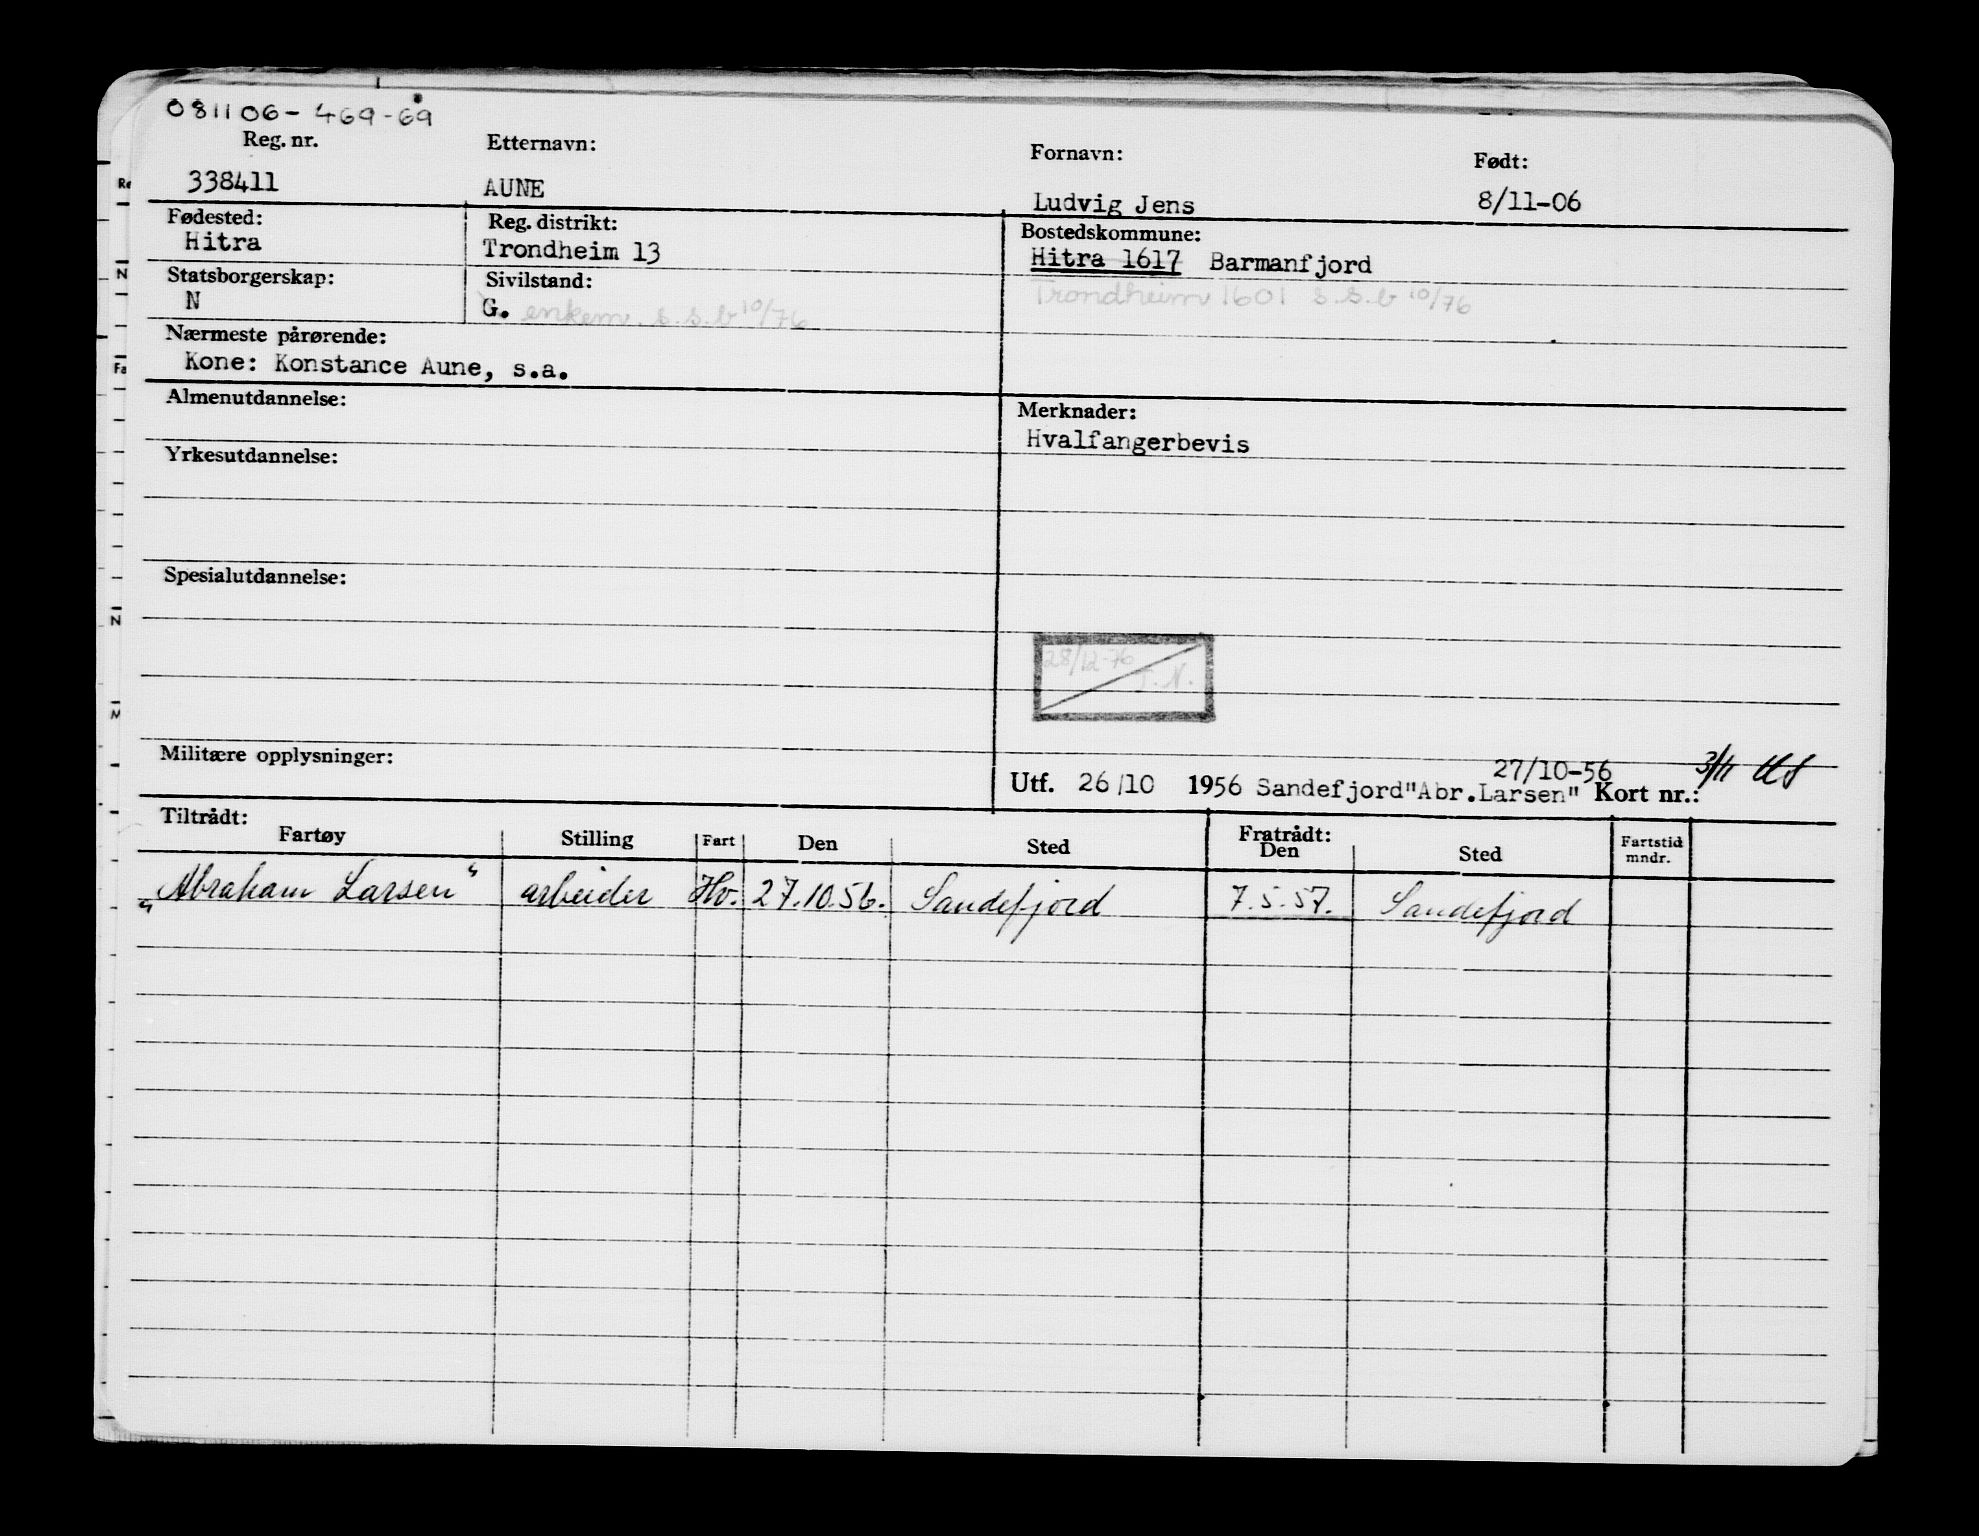 081106-469-69
Reg. nr. Etternavn: Fornavn: Født:
338411 AUNE Ludvig Jens 8/11-06
Fødested: Reg. distrikt: Bostedskommune:
Hitra Trondheim 13 Hitra 1617 Barmanfjord
Statsborgerskap: Sivilstand: Trondheim 1601 s.s.b 10/76
N G. enkem. s.s.b 10/76
Nærmeste pårørende:
Kone: Konstance Aune, s.a.
Almenutdannelse: Merknader:
Hvalfangerbevis
Yrkesutdannelse:
Spesialutdannelse:
28/12-76
T.N.
Militære opplysninger:
27/10-56 3/11
Utf. 26/10 1956 Sandefjord "Abr.Larsen" Kort nr.:
Tiltrådt: Fratrådt:
Fartøy Stilling Fart Den Sted Den Sted Fartstid mndr.
"Abraham Larsen" arbeider Hv. 27.10.56. Sandefjord 7.5.57. Sandefjord